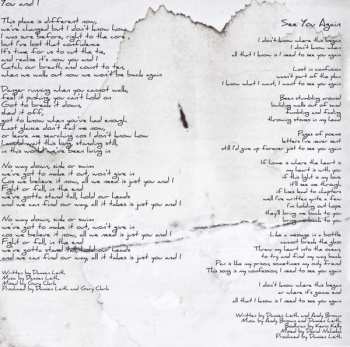 You and I
This place is different now,
we've changed but I don't know how
I was sure before, right to the core
but I've lost that confidence
It's time for us to cut the tie,
and realise it's now you and I
Catch our breath, and count to ten,
when we walk out now we won't be back again
Danger running when you cannot walk,
feel it pushing you can't hold on
Got to break it down,
shed it off,
got to know when you've had enough.
Last glance don't fail me now,
or leave me searching cos I don't know how
I would wait this long, standing still,
in this world we've been living in
No way down, sink or swim
we've got to make it out, won't give in
Cos we believe in now, all we need is just you and I
Fight or fall, in the end
we've gotta stand tall, hold our hands
and we can find our way, all it takes is just you and I
No way down, sink or swim
we've got to make it out, won't give in
cos we believe in now, all we need is just you and I
Fight or fall, in the end
we've gotta stand tall, hold our hands
and we can find our way, all it takes is just you and I
Written by Duncan Leith
Music by Duncan Leith
Mixed by Gary Clark
Produced by Duncan Leith and Gary Clark
See You Again
I don't know where this began
I don't know when
all that I know is I need to see you again
Lost in confusion
wasn't part of the plan
I know what I want, I want to see you again
Been stumbling around
building walls out of sand
fumbling and fooling
throwing stones in my hand
Pages of poems
letters I've never sent
still I'd give up forever just to see you again
If home is where the heart is
my heart is with you
if the light is my love
it'll see me through
if lines lead to chapters
well I've written quite a few
I'm hoping and hope
they'll bring me back to you
bring me back to you
Like a message in a bottle
cannot break the glass
Throw my heart into the ocean
to try and find my way back
Pen is like my prison, sometimes my only friend
This song is my confession, I need to see you again
I don't know where this began
or where it's gonna end
all that I know is I need to see you again
Written by Duncan Leith and Andy Brown
Music by Andy Brown and Duncan Leith
Backing by Kerry Kelly
Mixed by David
Produced by Duncan Leith